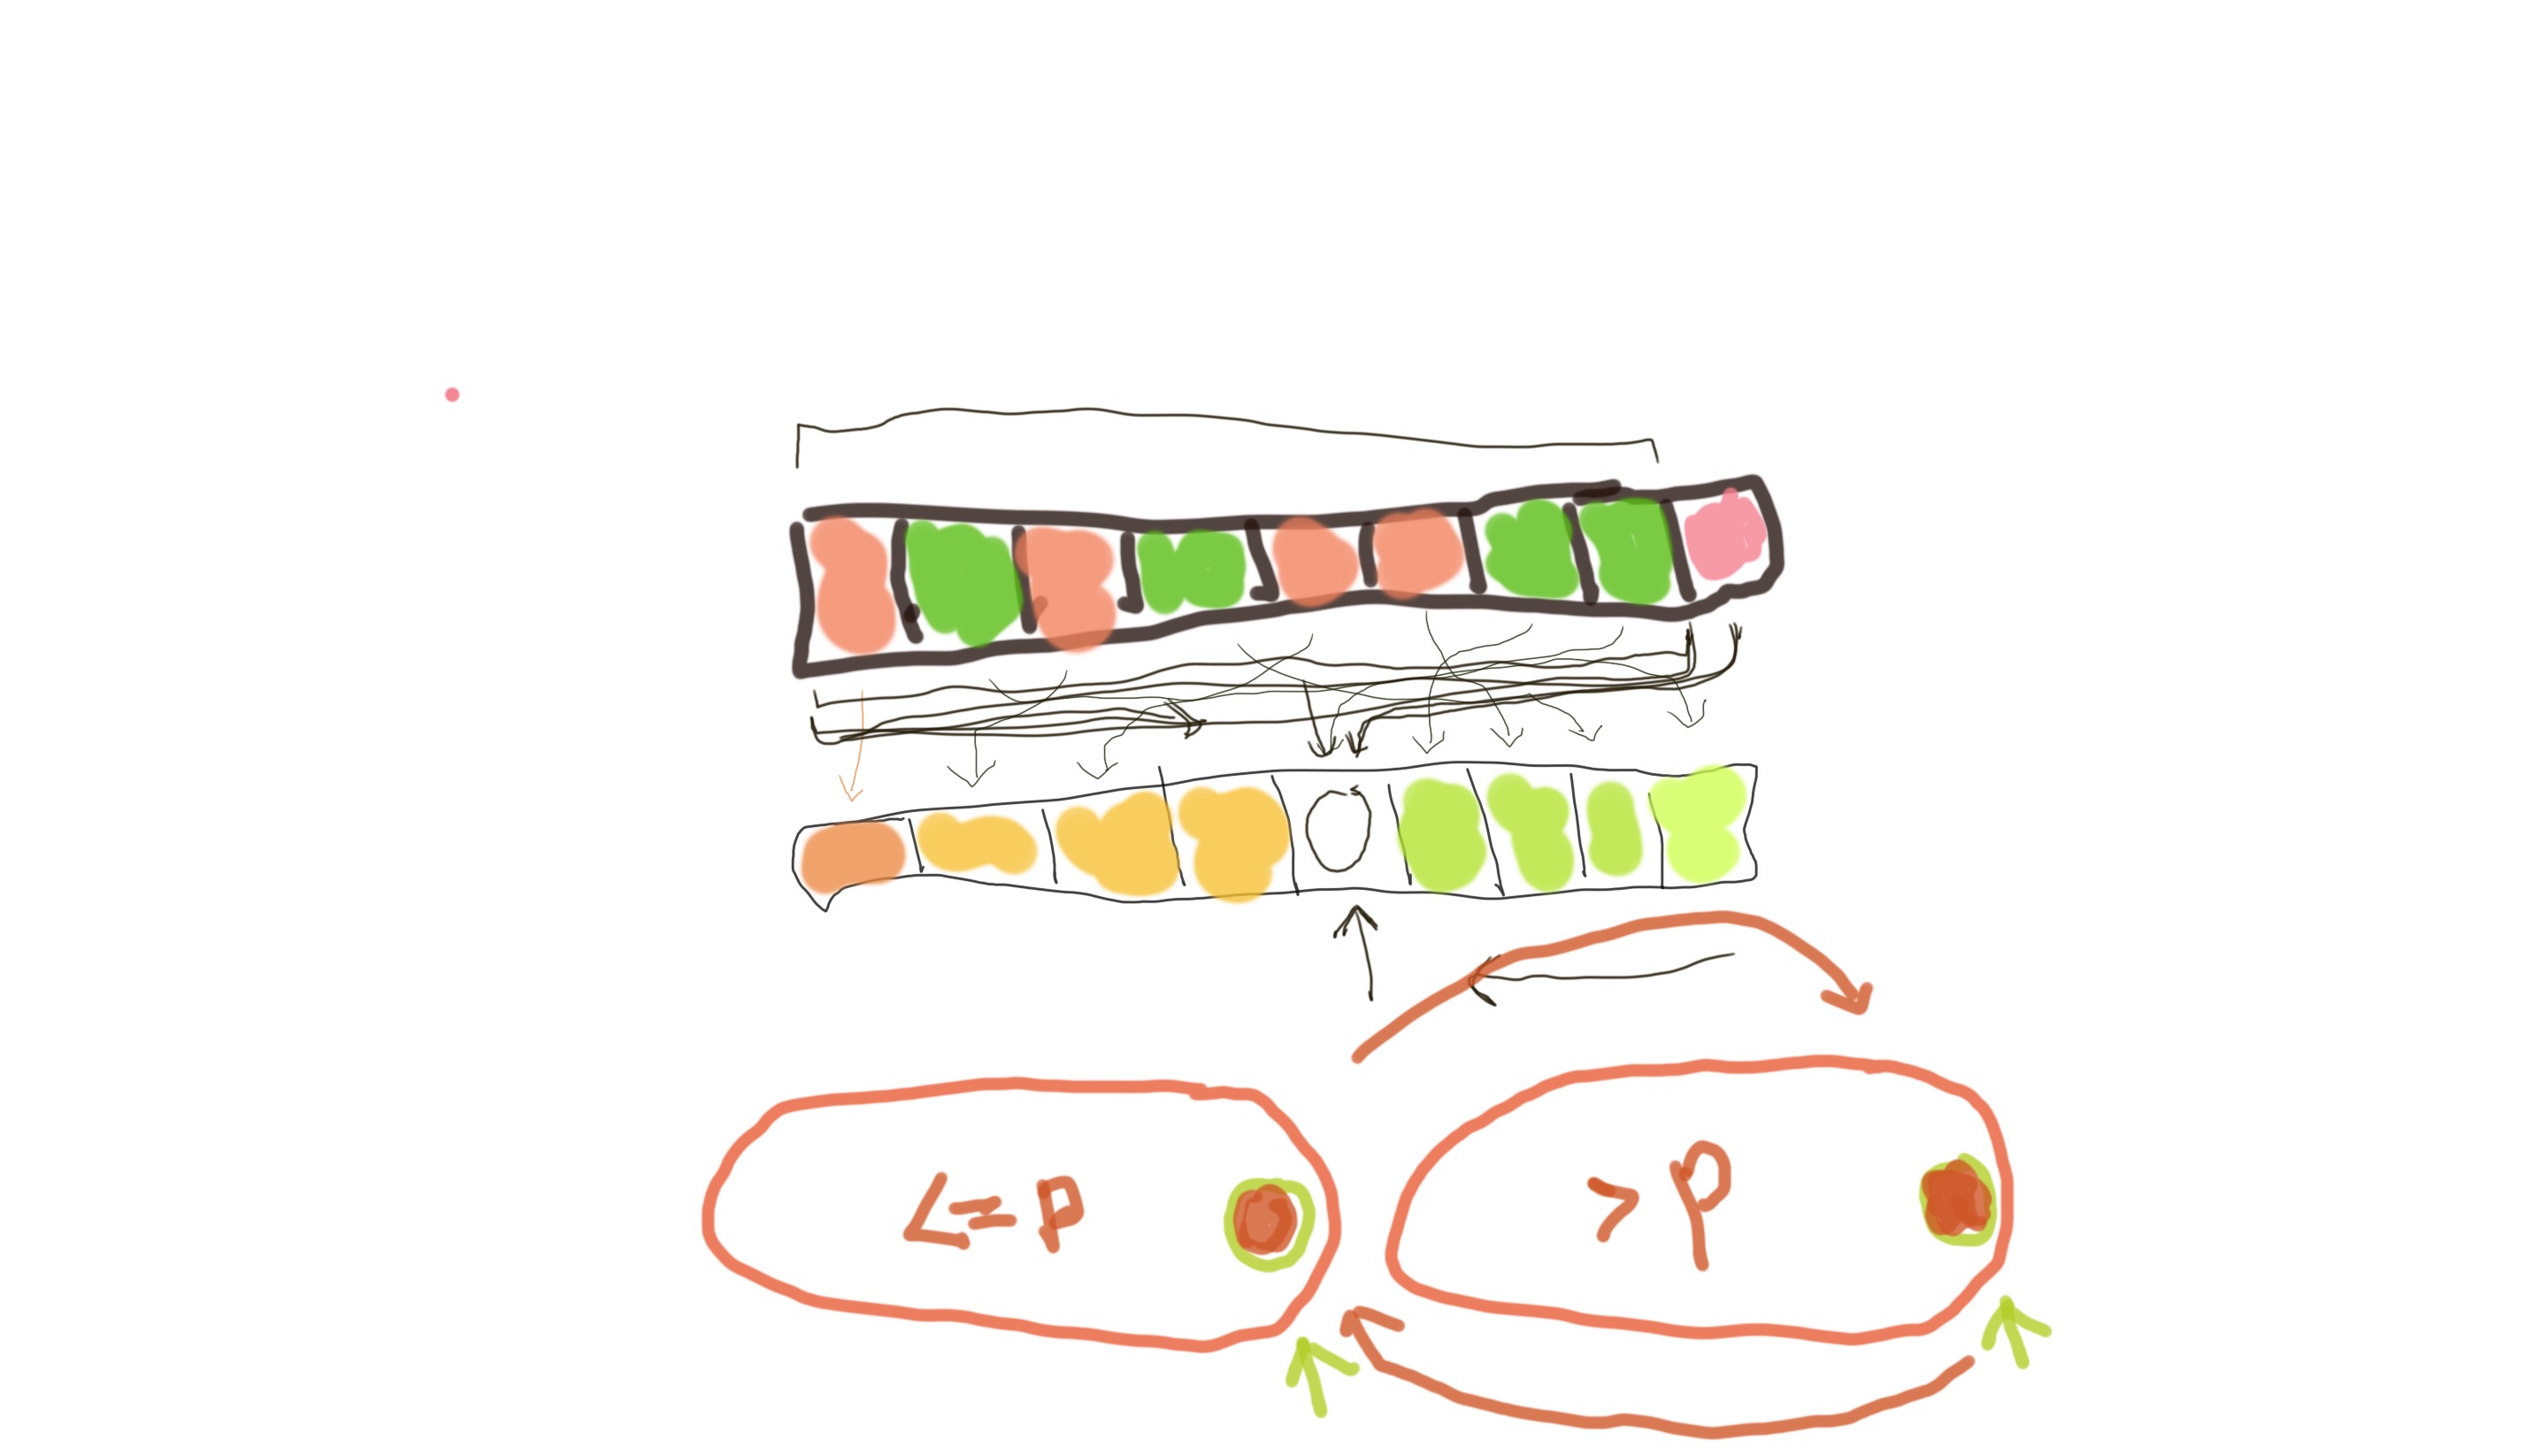 <=p
>p